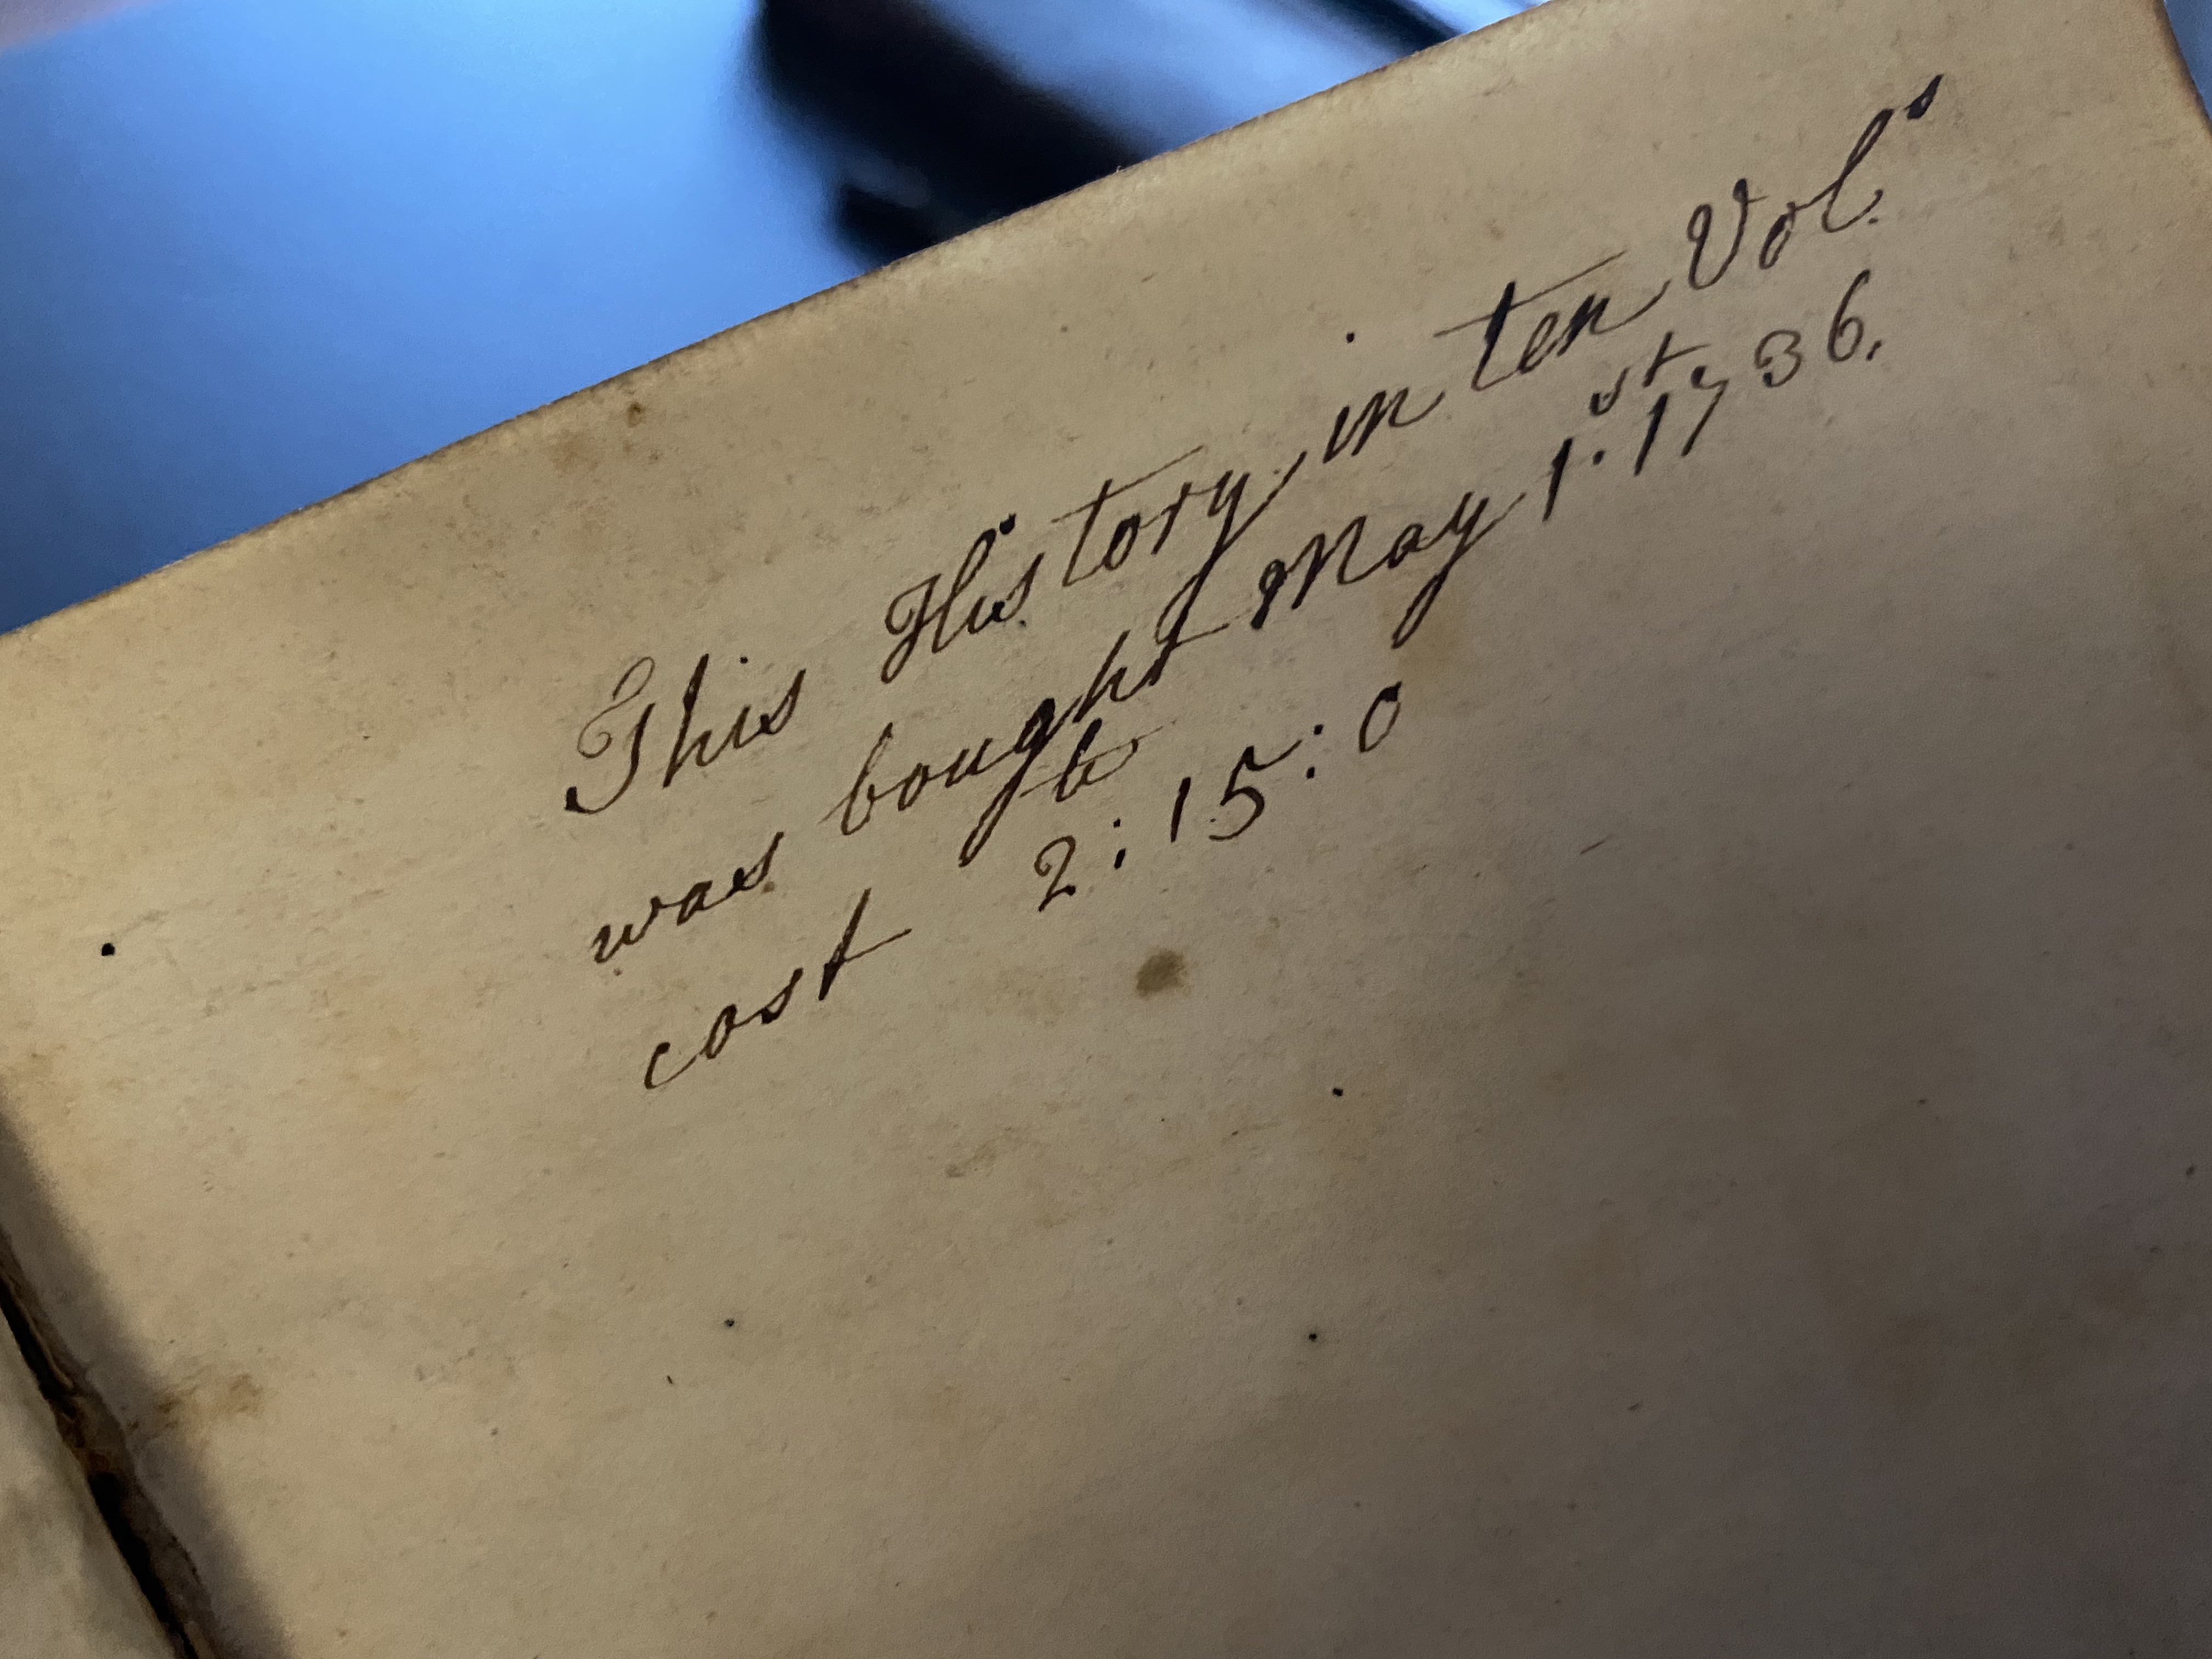 This History in ten Vol.s
was bought May 1.st 1736.
cost 2 : 15 : 0